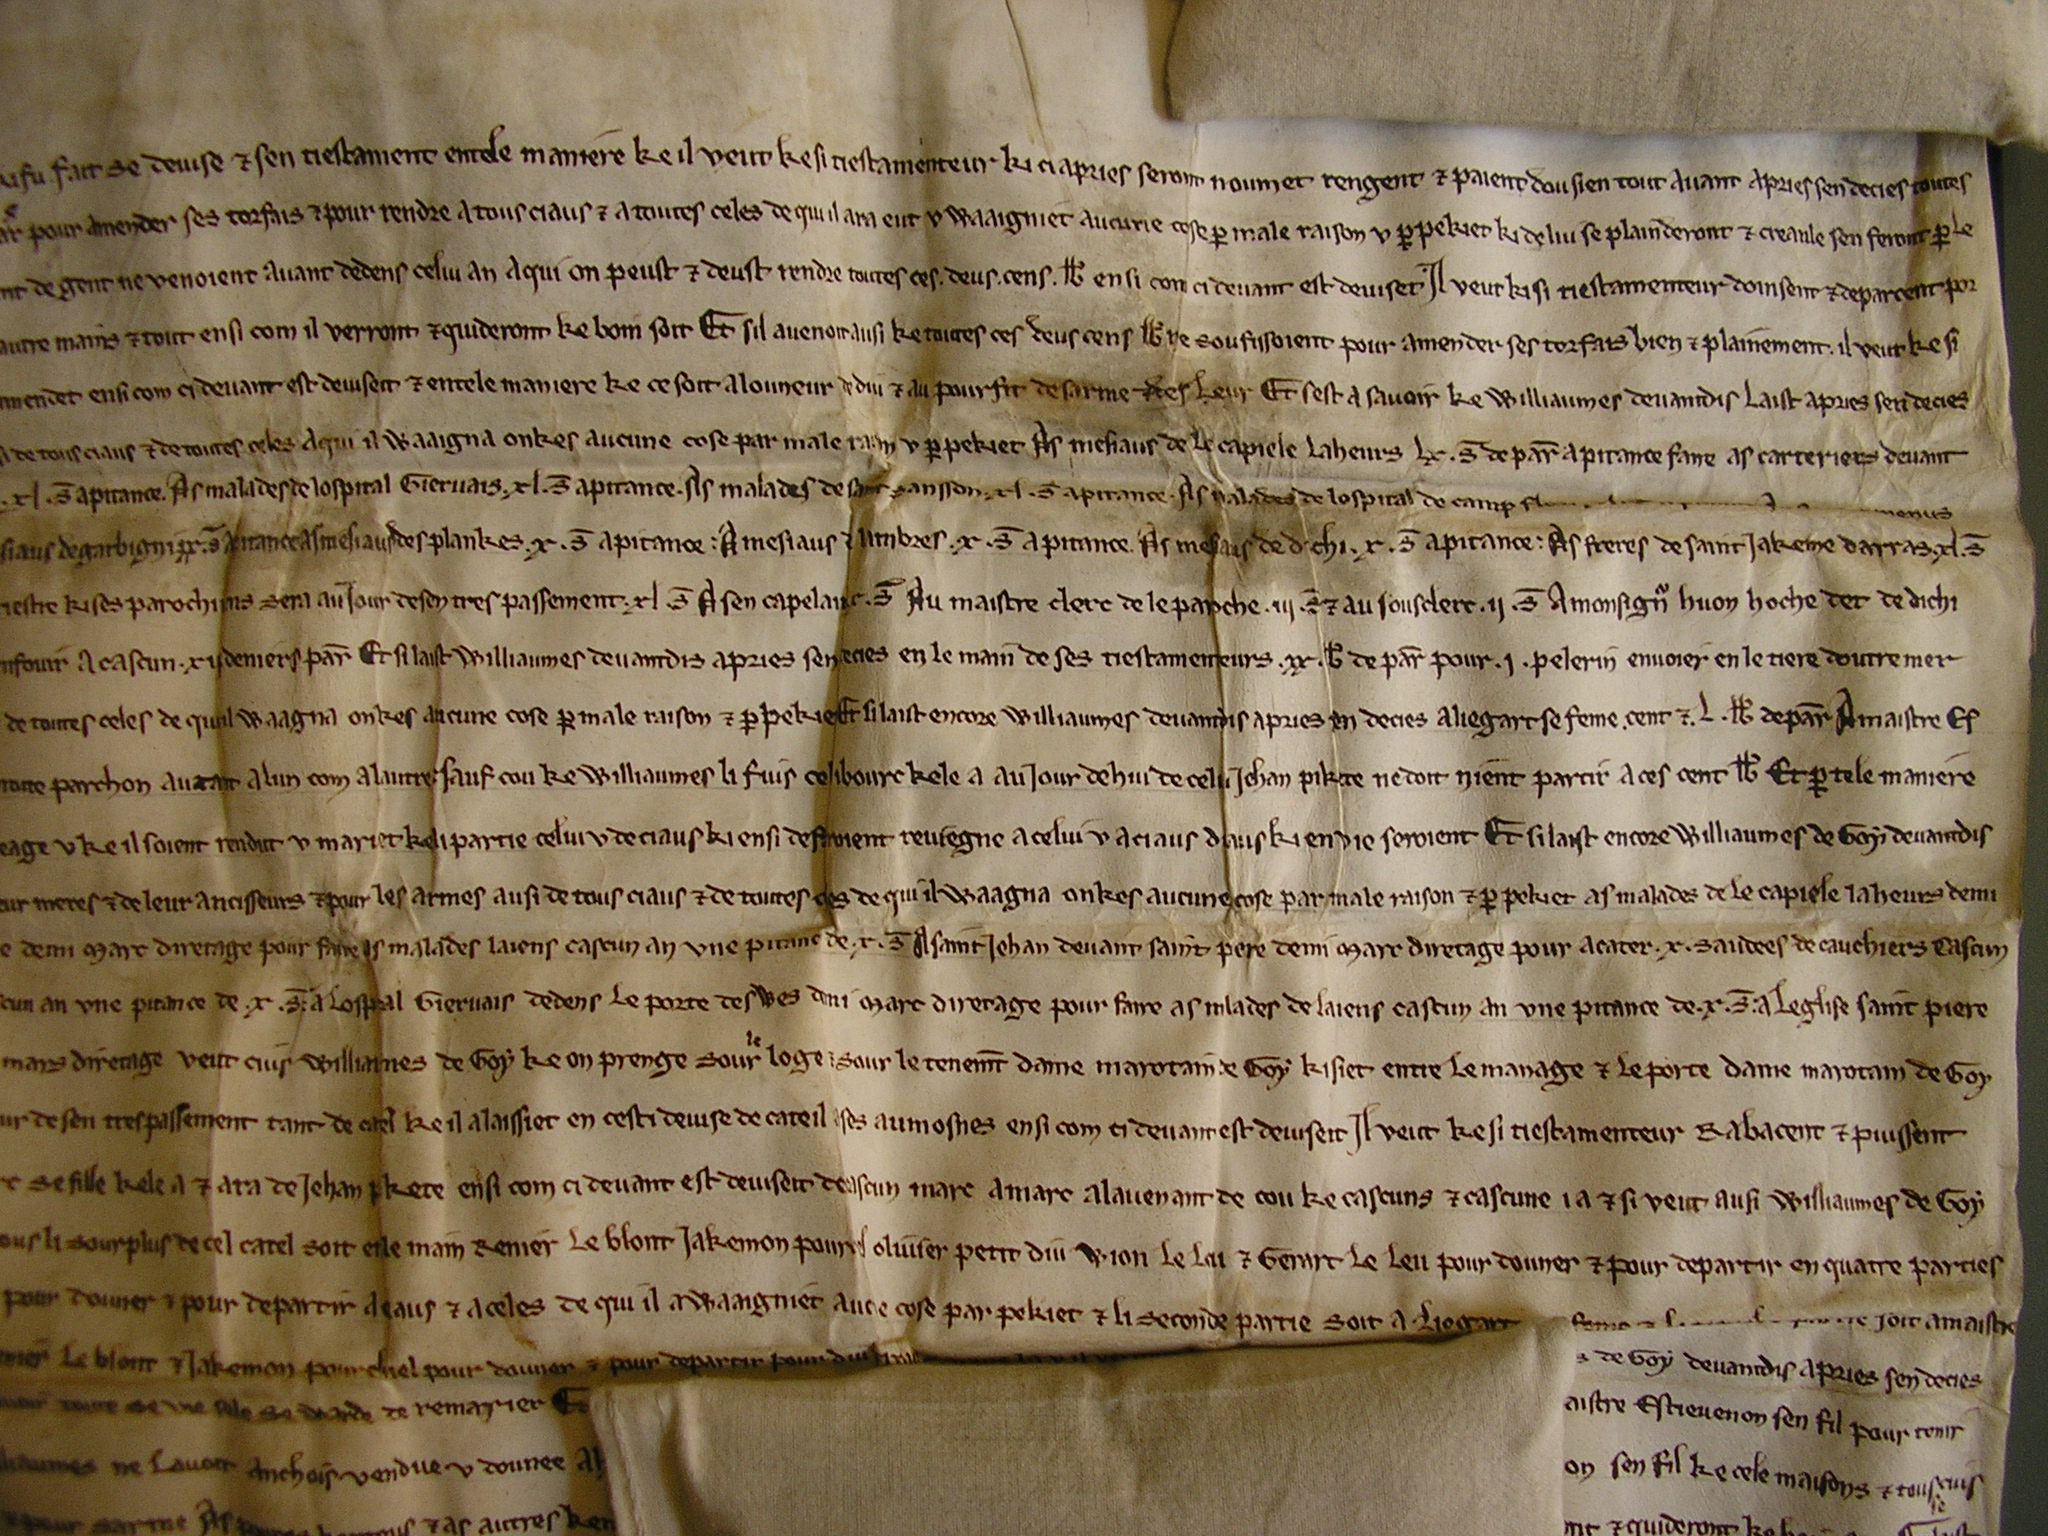 fait se devise ⁊ sen tiestament entele maniere ke il veut ke si tiestamenteur ki ci apries seront noumet rengent ⁊ paient dou sien tout avant apries sen decies toutes
pour amender ses torfais ⁊ pour rendre a tous ciaus ⁊ a toutes celes de qui il ara eut v waaigniet aucune cose ꝑ male raison v ꝑ pekiet ki de lui se plainderont ⁊ creaule sen feront ꝑ le
de gent ne venoient avant dedens celui an a qui on peust ⁊ deust rendre toutes ces .deus.cens. lb̃ ensi com ci devant est deviset Il veut ki si tiestamenteur doinsent ⁊ departent por
autre mains ⁊ tout ensi com il verront ⁊ quideront ke boin soit Et sil avenoit ausi ke toutes ces deus cens lb̃ ne soufissoient pour amender ses torfais bien ⁊ plainement. il veut ke si
ensi com ci devant est deviseit ⁊ entele maniere ke ce soit a lonneur de diu ⁊ au pourfit de sarme ⁊ des leur Et sest a savoir ke Williaumes devantdis laist apries sen decies
de tous ciaus ⁊ de toutes celes a qui il waaigna onkes aucune cose par male raison v ꝑ pekiet As mesiaus de le capiele laheurs lx. s̃ de par̃ a pitance faire as carteriers devant
.xl. s̃ a pitance. As malades de lospital Giervais .xl. s̃ a pitance. As malades de saint sansson .xl. s̃ a pitance. As malades de lospital de camp
de garbigni .xx. s̃ a pitance as mesiaus des plankes .x. s̃ a pitance: A mesiaus de lambres .x. s̃ a pitance. As mesiaus de dichi .x. s̃ a pitance: As freres de saint Jakeme darras .xl. s̃
ki ses parochins sera au Jour de sen trespassement .xl. s̃ A sen capelain s̃ Au maistre clerc de le paroche .iij. s̃ ⁊ au sousclerc .ij. s̃ A monsign̄ huon hoche det de dichi
enfouir a cascun .xij deniers par̃ Et si laist Williaumes devantdis apries sen decies en le main de ses tiestamenteurs .xx. lb̃ de par̃ pour .j. pelerin envoier en le tiere doutre mer
de toutes celes de qui il waagna onkes aucune cose ꝑ male raison ⁊ ꝑ pekiet Et si laist encore Williaumes devantdis apries sen decies a liegart se feme .cent ⁊ .L. lb̃ de par̃ A maistre Es
toute parchon autant a lun com a lautre sauf cou ke Williaumes li fuis celi bourc kele a au Jour de hui de celui Jehan pikete ne doit nient partir a ces cent lb̃ Et ꝑ tele maniere
eage v ke il soient rendut v mariet ke li partie celui v de ciaus ki ensi defiroient reviegne a celui v a ciaus daus ki en vie seroient Et si laist encore Williaumes de Goy devantdis
meres ⁊ de leur ancisseurs ⁊ pour les armes ausi de tous ciaus ⁊ de toutes celes de qui il waagna onkes aucune cose par male raison ⁊ ꝑ pekiet as malades de le capiele laheurs demi
demi Marc diretage pour faire as malades laiens cascun an vne pitance de .x. s̃ A saint Jehan devant saint pere demi Marc diretage pour acater .x. saudees de cauchiers Cascun
an vne pitance de .x. s̃: a lospital Giervais dedens le porte des wes demi Marc diretage pour faire as malades de laiens cascun an vne pitance de .x. s̃: a leglise saint piere
mars diretage veut cius Williaumes de Goy ke on prenge sour le loge ⁊ sour le tenemt̃ dame marotain de Goy ki siet entre le manage ⁊ le porte dame marotain de Goy
de sen trespassement tant de catel ke il a laissiet en cesti devise de cateil a ses aumosnes ensi com ci devant est deviseit Il veut ke si tiestamenteur Rabacent ⁊ puissent
se fille kele a ⁊ ara de Jehan pikete ensi com ci devant est deviseit de cascun marc a marc a lavenant de cou ke cascuns ⁊ cascune i a ⁊ si veut ausi Williaumes de Goy
li sourplus de cel catel soit en le main Renier le blont Jakemon pourcel olivier petit diu wion le leu ⁊ Gerart le leu pour douner ⁊ pour departir en quatre parties
pour douner ⁊ pour departir a ciaus ⁊ a celes de qui il a waaigniet aucune cose par pekiet ⁊ li seconde partie soit a Liegart se feme soit a maistre
le blont ⁊ Jakemon pourchiel pour douner ⁊ pour departir pour diu de Goy devantdis apries sen decies
toute se vie de remarier Et maistre Estievenon sen fil pour tenir
ne lavoit anchois vendue v dounee sen fil ke cele maisons ⁊ tous cius
⁊ as autres ⁊ quideront